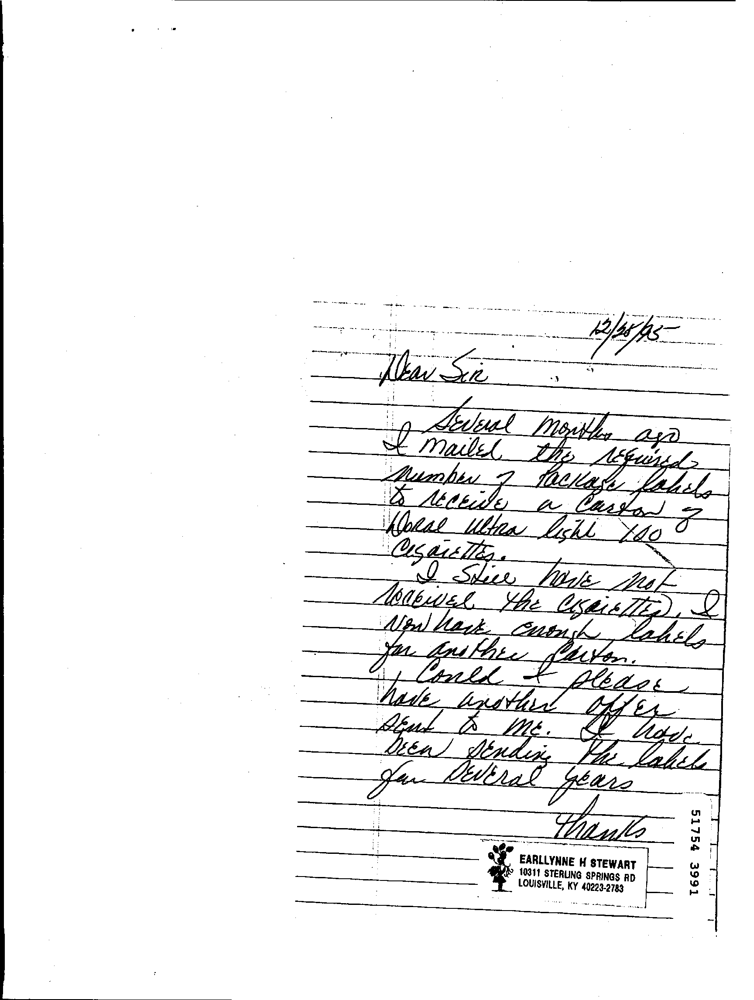 12/28/95
Dear Sir
Several months ago
I mailed the required
number of Package labels
to receive a Carton of
Doral Ultra light 100
Cigarettes.
I Still have not
received the Cigarettes, I
Now have enough labels
for another Carton.
Could I please
have another offer
sent to me. I have
been sending the labels
for several years
Thanks
EARLLYNNE H STEWART
10311 STERLING SPRINGS RD
LOUISVILLE, KY 40223-2783
51754 3991